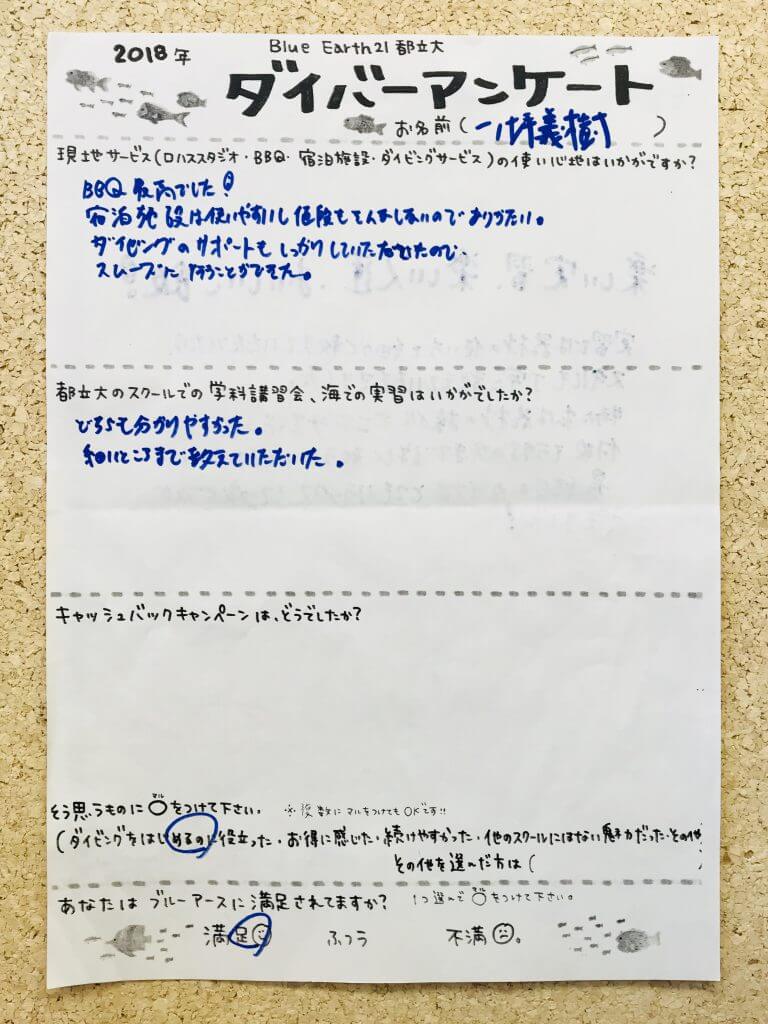 2018年
Blue Earth21 都立大
ダイバーアンケート
お名前(一坪義樹)
現地サービス(ロハススタジオ・BBQ・宿泊施設・ダイビングサービス)の使い心地はいかがですか?
BBQ最高でした!
宿泊施設は使いやすいし値段もそんなしないのでありがたい。
ダイビングのサポートもしっかりしていただけたので
スムーズに行うことができた。
都立大のスクールでの学科講習会、海での実習はいかがでしたか?
どちらも分かりやすかった。
細いところまで教えていただいた。
キャッシュバックキャンペーンは、どうでしたか?
そう思うものに○をつけて下さい。 ※複数にマルをつけてもOKです!!
(ダイビングをはじめるのに役立った・お得に感じた・続けやすかった・他のスクールにはない魅力だった・その他
その他を選んだ方は(
あなたはブルーアースに満足されてますか? 1つ選んで○をつけて下さい。
満足 ふつう 不満。